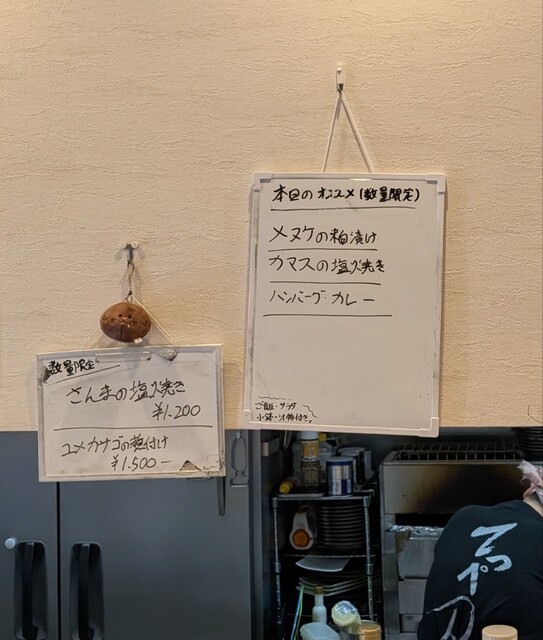 本日のオススメ(数量限定)
メヌケの粕漬け
カマスの塩焼き
ハンバーグ・カレー
ご飯・サラダ
小鉢・汁物付き。
数量限定
さんまの塩焼き
¥1.200
ユメカサゴの煮付け
¥1.500−